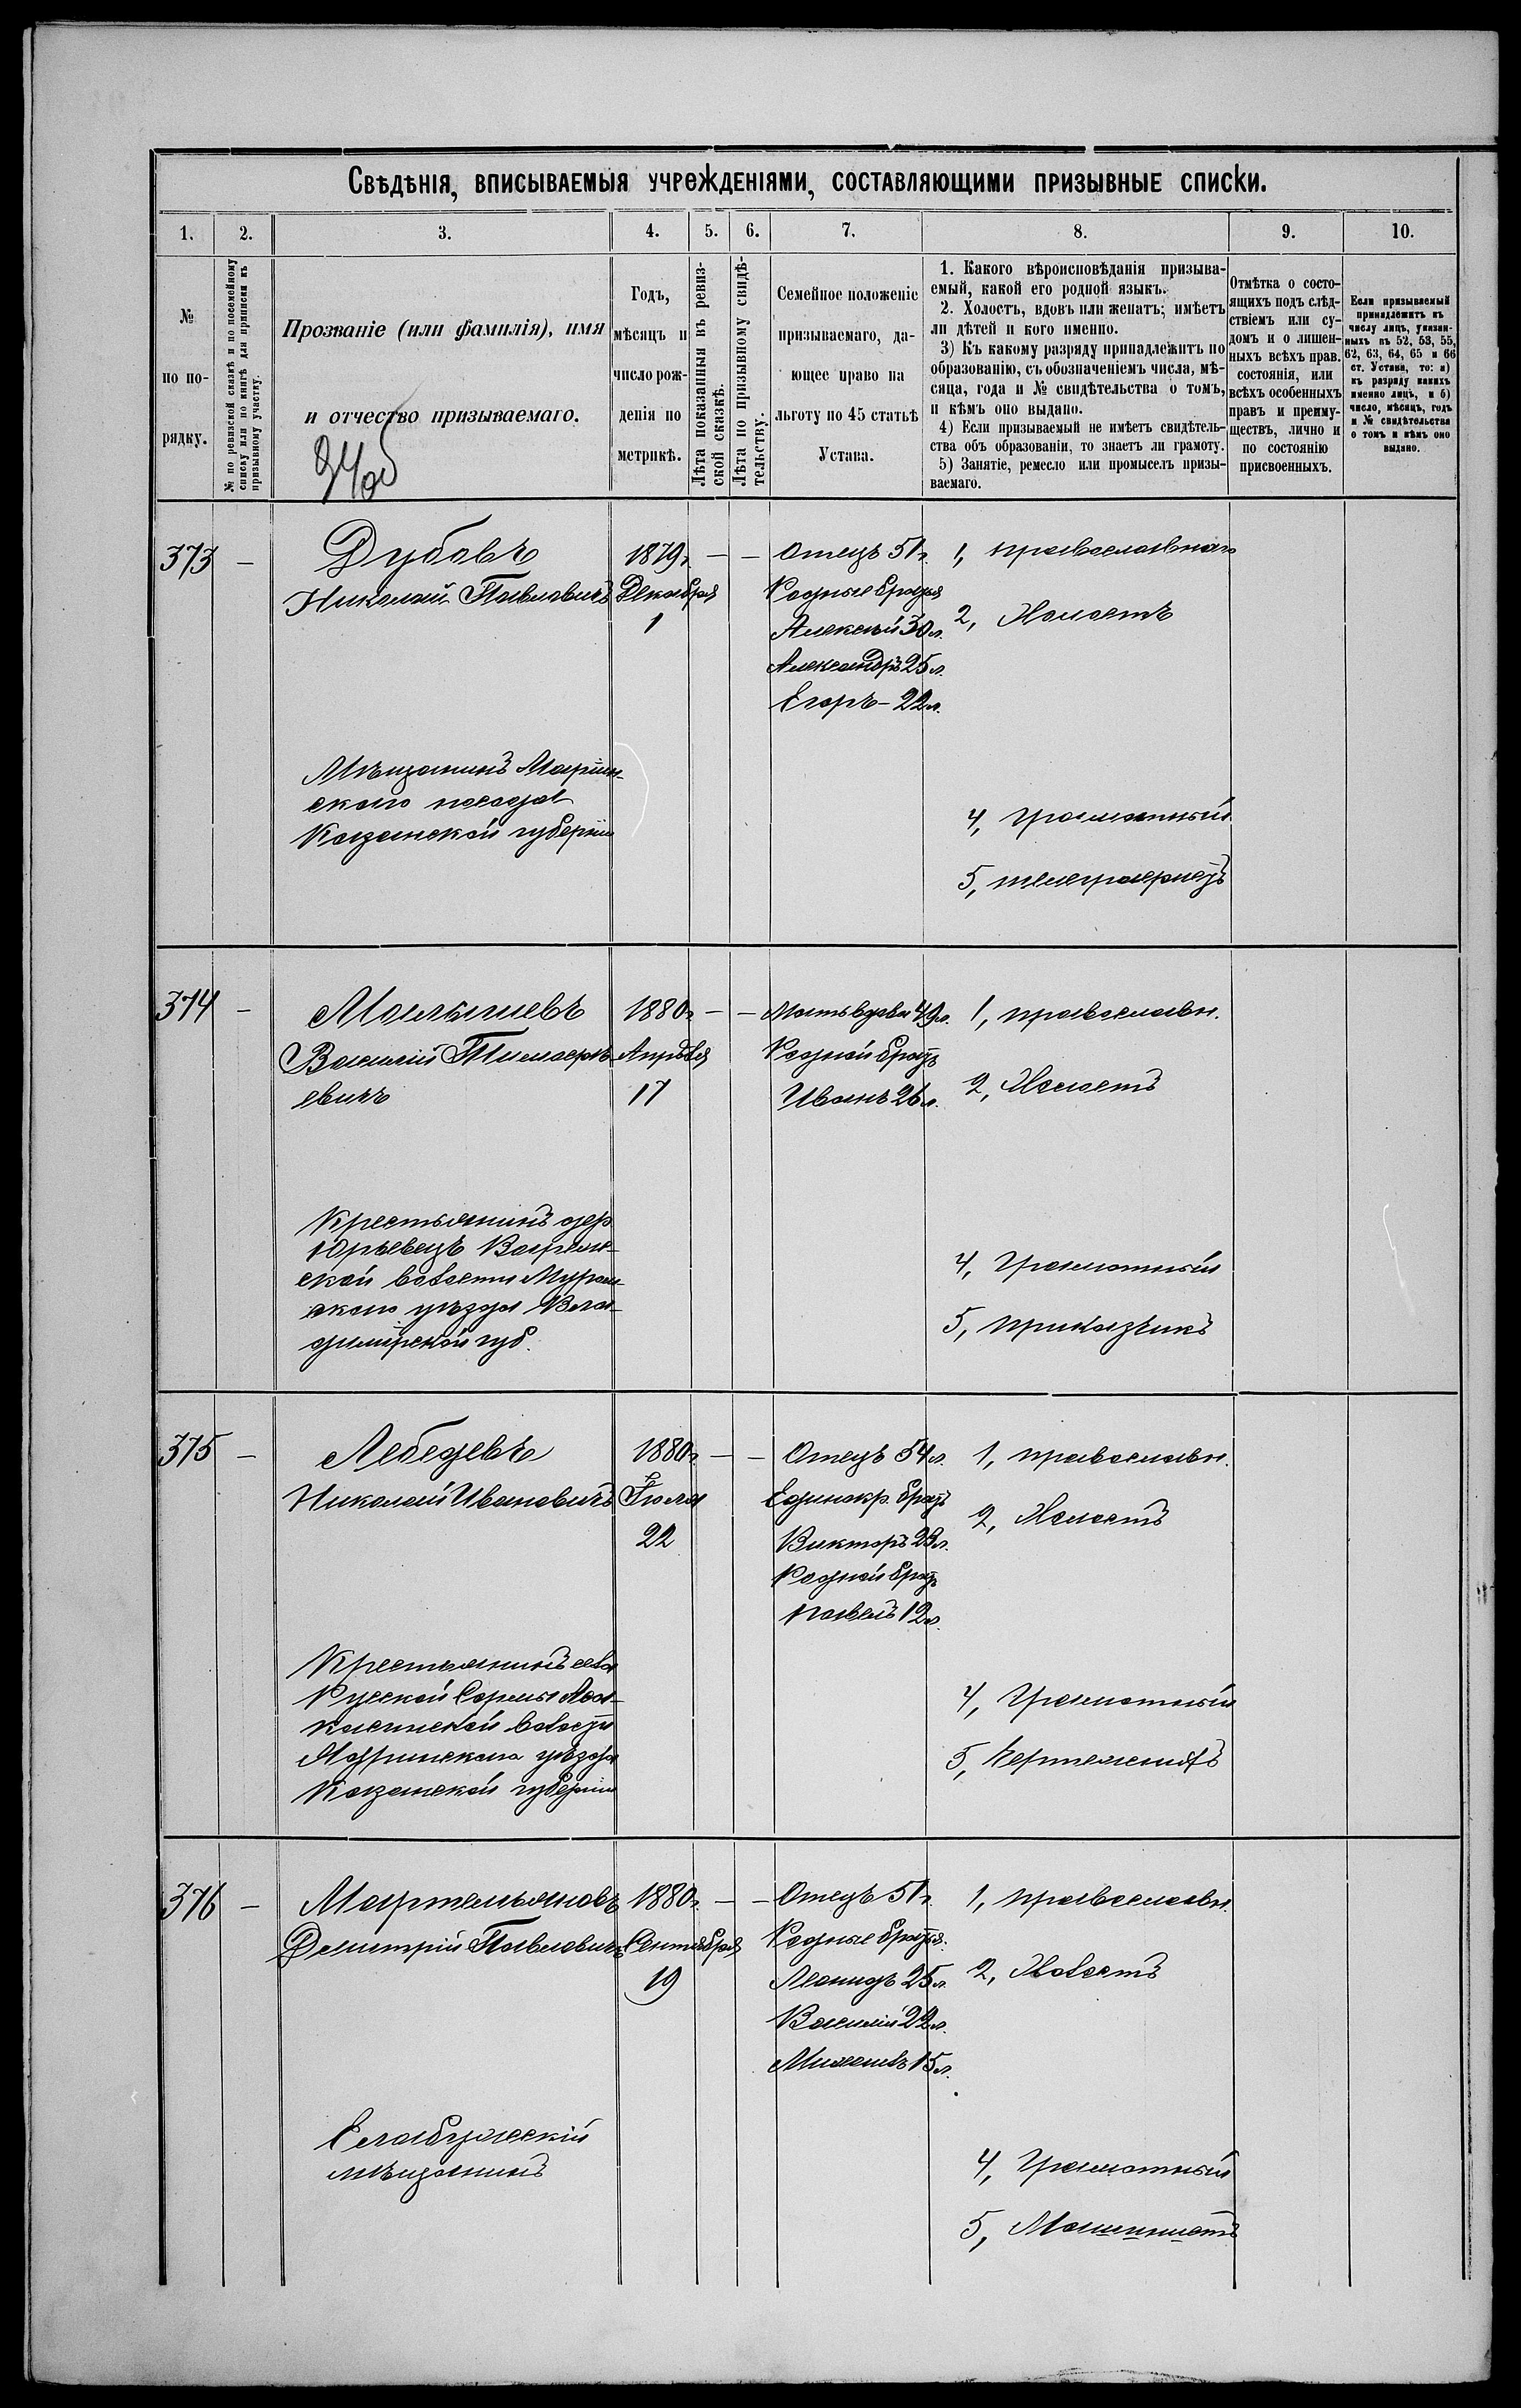 Свѣдѣнія, вписываемыя учрежденіями, составляющими призывные списки.
1. 2. 3. 4. 5. 6. 7. 8. 9. 10.
№
по по-
рядку.
№ по ревизской сказкѣ и по посемейному
списку или по книгѣ для приписки къ
призывному участку.
Прозваніе (или фамилія), имя
и отчество призываемаго.
Годъ,
мѣсяцъ и
число рож-
денія по
метрикѣ.
Лѣта показанныя въ ревиз-
ской сказкѣ.
Лѣта по призывному свидѣ-
тельству.
Семейное положеніе
призываемаго, да-
ющее право на
льготу по 45 статьѣ
Устава.
1. Какого вѣроисповѣданія призыва-
емый, какой его родной языкъ.
2. Холостъ, вдовъ или женатъ; имѣетъ
ли дѣтей и кого именно.
3) Къ какому разряду принадлежитъ по
образованію, съ обозначеніемъ числа, мѣ-
сяца, года и № свидѣтельства о томъ,
и кѣмъ оно выдано.
4) Если призываемый не имѣетъ свидѣтель-
ства объ образованіи, то знаетъ ли грамоту.
5) Занятіе, ремесло или промыселъ призы-
ваемаго.
Отмѣтка о состо-
ящихъ подъ слѣд-
ствіемъ или су-
домъ и о лишен-
ныхъ всѣхъ прав.
состоянія, или
всѣхъ особенныхъ
правъ и преиму-
ществъ, лично и
по состоянію
присвоенныхъ.
Если призываемый
принадлежитъ къ
числу лицъ, указан-
ныхъ въ 52, 53, 55,
62, 63, 64, 65 и 66
ст. Устава, то: а)
къ разряду какихъ
именно лицъ, и б)
число, мѣсяцъ, годъ
и № свидѣтельства
о томъ и кѣмъ оно
выдано.
373 -
Дубовъ
Николай Павловичъ
Мѣщанинъ Маріин-
скаго посада
Казанской губерніи
1879г. - -
Декабря
1
Отецъ 51г.
Родные братья
Алексѣй 30л.
Александръ 25л.
Егоръ - 22л.
1, православнаго
2, Холостъ
4, грамотный
5, телеграфистъ
374 -
Малышевъ
Василій Тимофѣ-
евичъ
Крестьянинъ дер
Юрьевецъ Вареж-
ской волости Муром-
скаго уѣзда Вла-
димірской губ.
1880г. - -
Апрѣля
17
Мать вдова 49л.
Родной братъ
Иванъ 26л.
1, православн.
2, Холостъ
4, Грамотный
5, приказчикъ
375 -
Лебедевъ
Николай Ивановичъ
Крестьянинъ села
Русской Сормы Ас-
касинской волости
Ядринскаго уѣзда
Казанской губерніи
1880г. - -
Іюля
22
Отецъ 54л.
Единокр. братъ
Викторъ 28л.
Родной братъ
Павелъ 12л.
1, православн.
2, Холостъ
4, Грамотный
5, Чертежникъ
376 -
Мартемьяновъ
Дмитрій Павловичъ
Елабужскій
мѣщанинъ
1880г. - -
Сентября
19
Отецъ 51г.
Родные братья:
Леонидъ 25л.
Василій 22л.
Михаилъ 15л.
1, православн.
2, Холостъ
4, Грамотный
5, Машинистъ